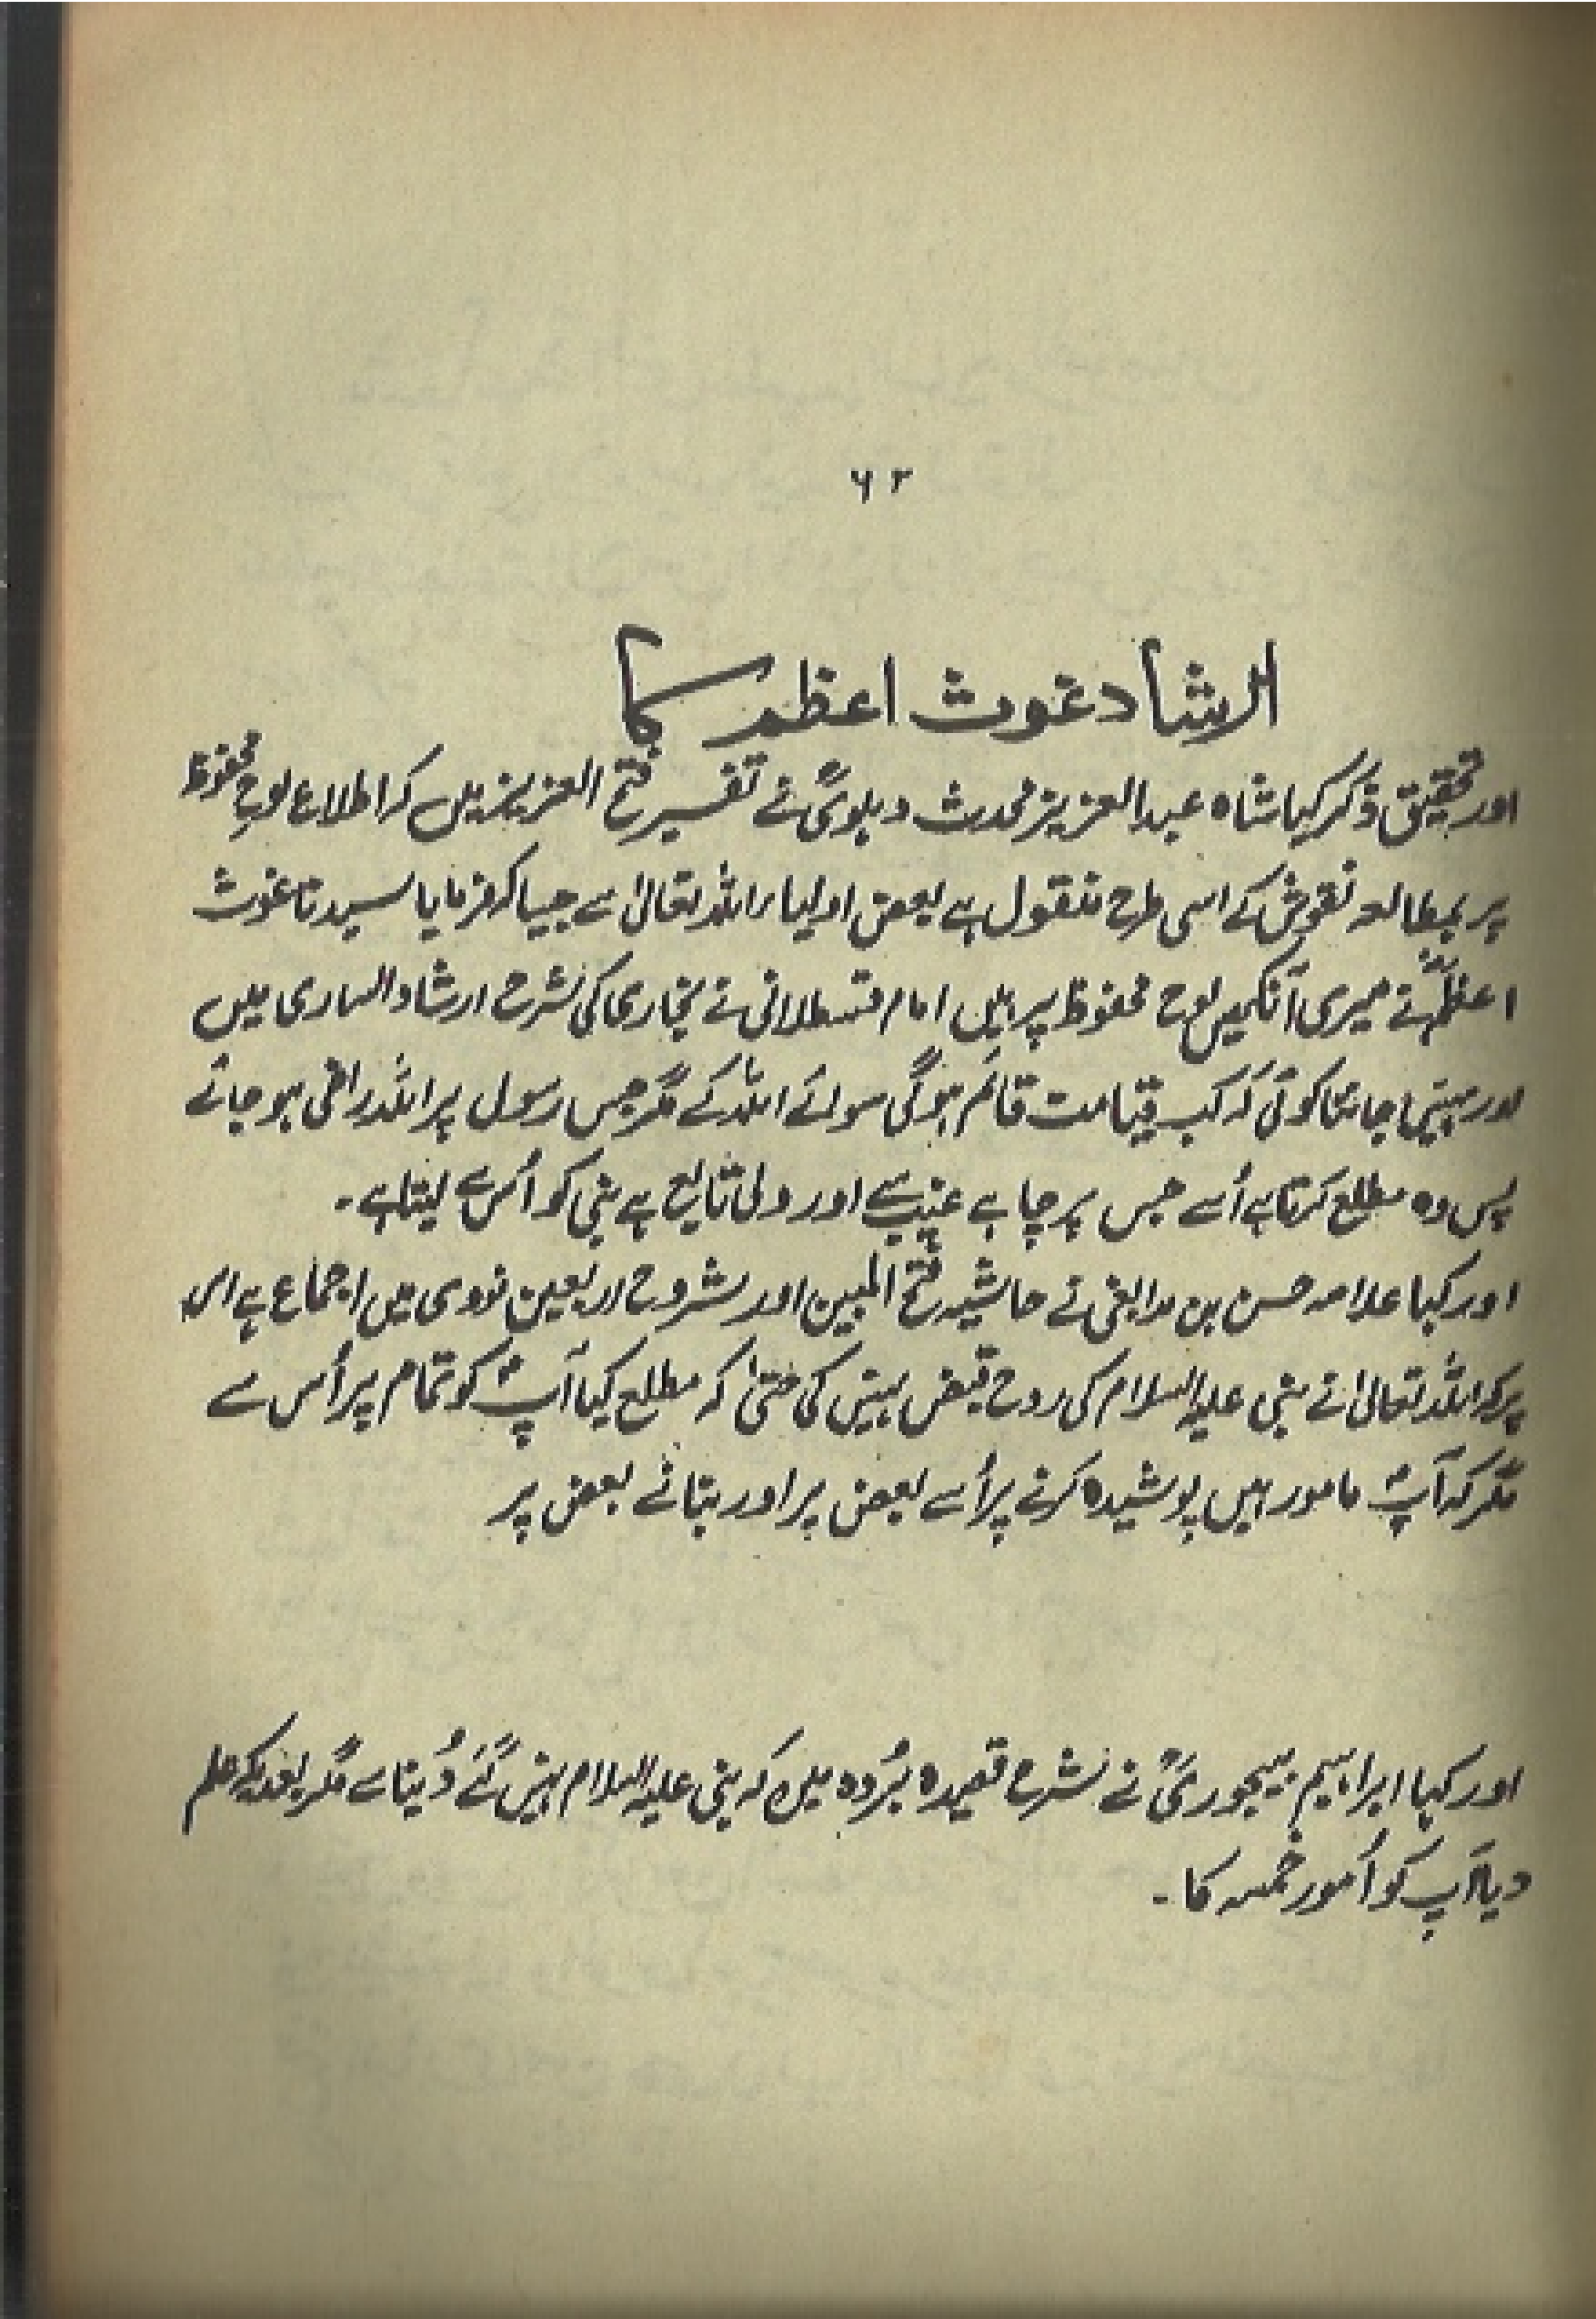 ۶۲
ارشاد غوث اعظم کا
اور تحقیق ذکر کیا شاہ عبدالعزیز محدث دہلویؒ نے تفسیر فتح العزیز میں کہ اطلاع لوحِ محفوظ
پر بمطالعہ نقوش کے اسی طرح منقول ہے بعض اولیاء اللہ تعالیٰ سے جیسا کہ فرمایا سیدنا غوث
اعظمؓ نے میری آنکھیں لوح محفوظ پر ہیں امام قسطلانی نے بخاری کی شرح ارشاد الساری میں
اور نہیں جانتا کوئی کہ کب قیامت قائم ہوگی سوائے اللہ کے مگر جس رسول پر اللہ راضی ہو جائے
پس وہ مطلع کرتا ہے اُسے جس پر چاہے غیب سے اور ولی تابع ہے نبی کو اُس سے لیتا ہے۔
اور کہا علامہ حسن بن مدابغی نے حاشیہ فتح المبین اور شروح اربعین نووی میں اجماع ہے اس
پر کہ اللہ تعالیٰ نے نبی علیہ السلام کی روح قبض نہیں کی حتیٰ کہ مطلع کیا آپؐ کو تمام پر اُس سے
مگر کہ آپؐ مامور ہیں پوشیدہ کرنے پر اُسے بعض پر اور بتانے بعض پر
اور کہا ابراہیم بیجوریؒ نے شرح قصیدہ بُردہ میں کہ نبی علیہ السلام نہیں گئے دُنیا سے مگر بعد کہ علم
دیا آپ کو اُمور خمسہ کا۔